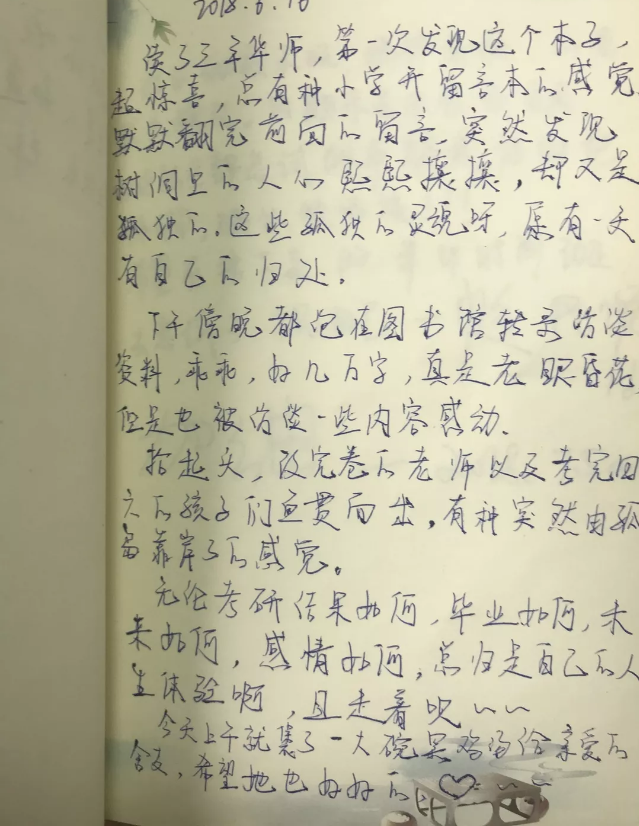 2018.6.10
读了三年华师，第一次发现这个本子，
超惊喜，总有种小学升留言本的感觉
默默翻完前面的留言，突然发现
树洞里的人们熙熙攘攘，却又是
孤独的。这些孤独的灵魂呀，愿有一天
有自己的归处。
下午傍晚都泡在图书馆转录访谈
资料，乖乖，好几万字，真是老眼昏花
但是也被访谈一些内容感动。
抬起头，改完卷的老师以及考完回
去的孩子们鱼贯而出，有种突然由孤
岛靠岸了的感觉。
无论考研结果如何，毕业如何，未
来如何，感情如何，总归是自己的人
生体验啊，且走着吧~~
今天上午就煲了一大碗果鸡汤给亲爱的
舍友，希望她也好好的，♡~~